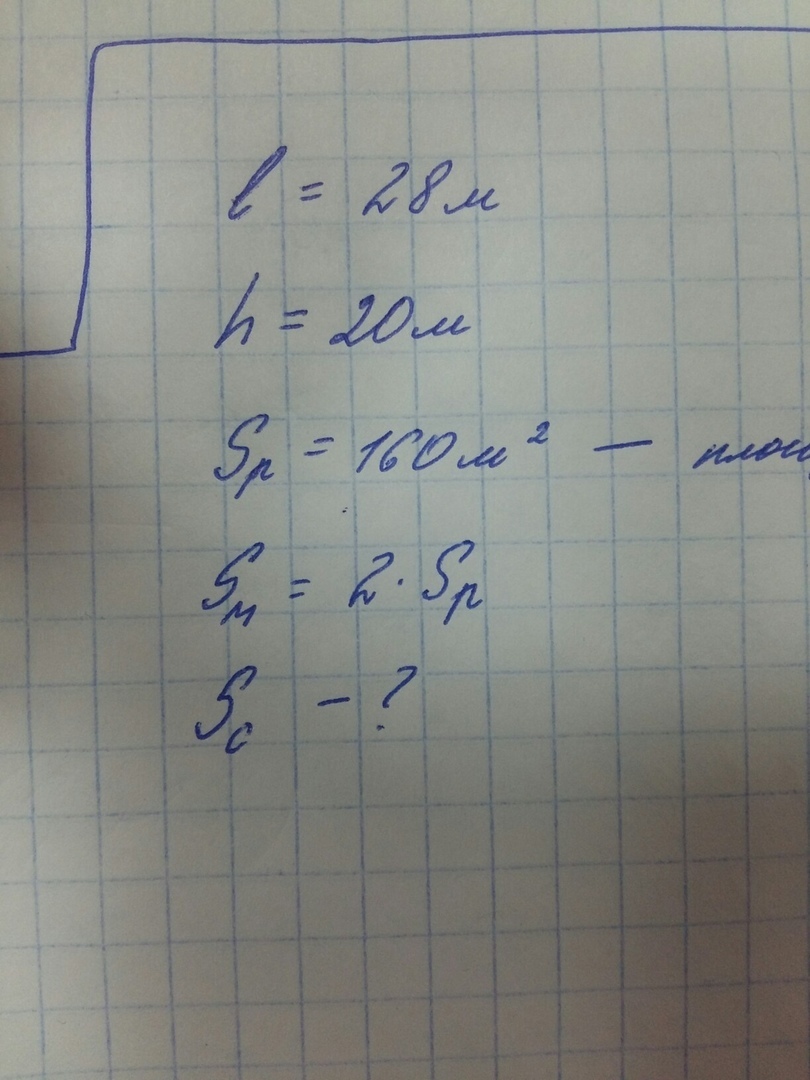 l = 28м
h = 20м
Sр = 160м² —
Sм = 2·Sр
Sс - ?